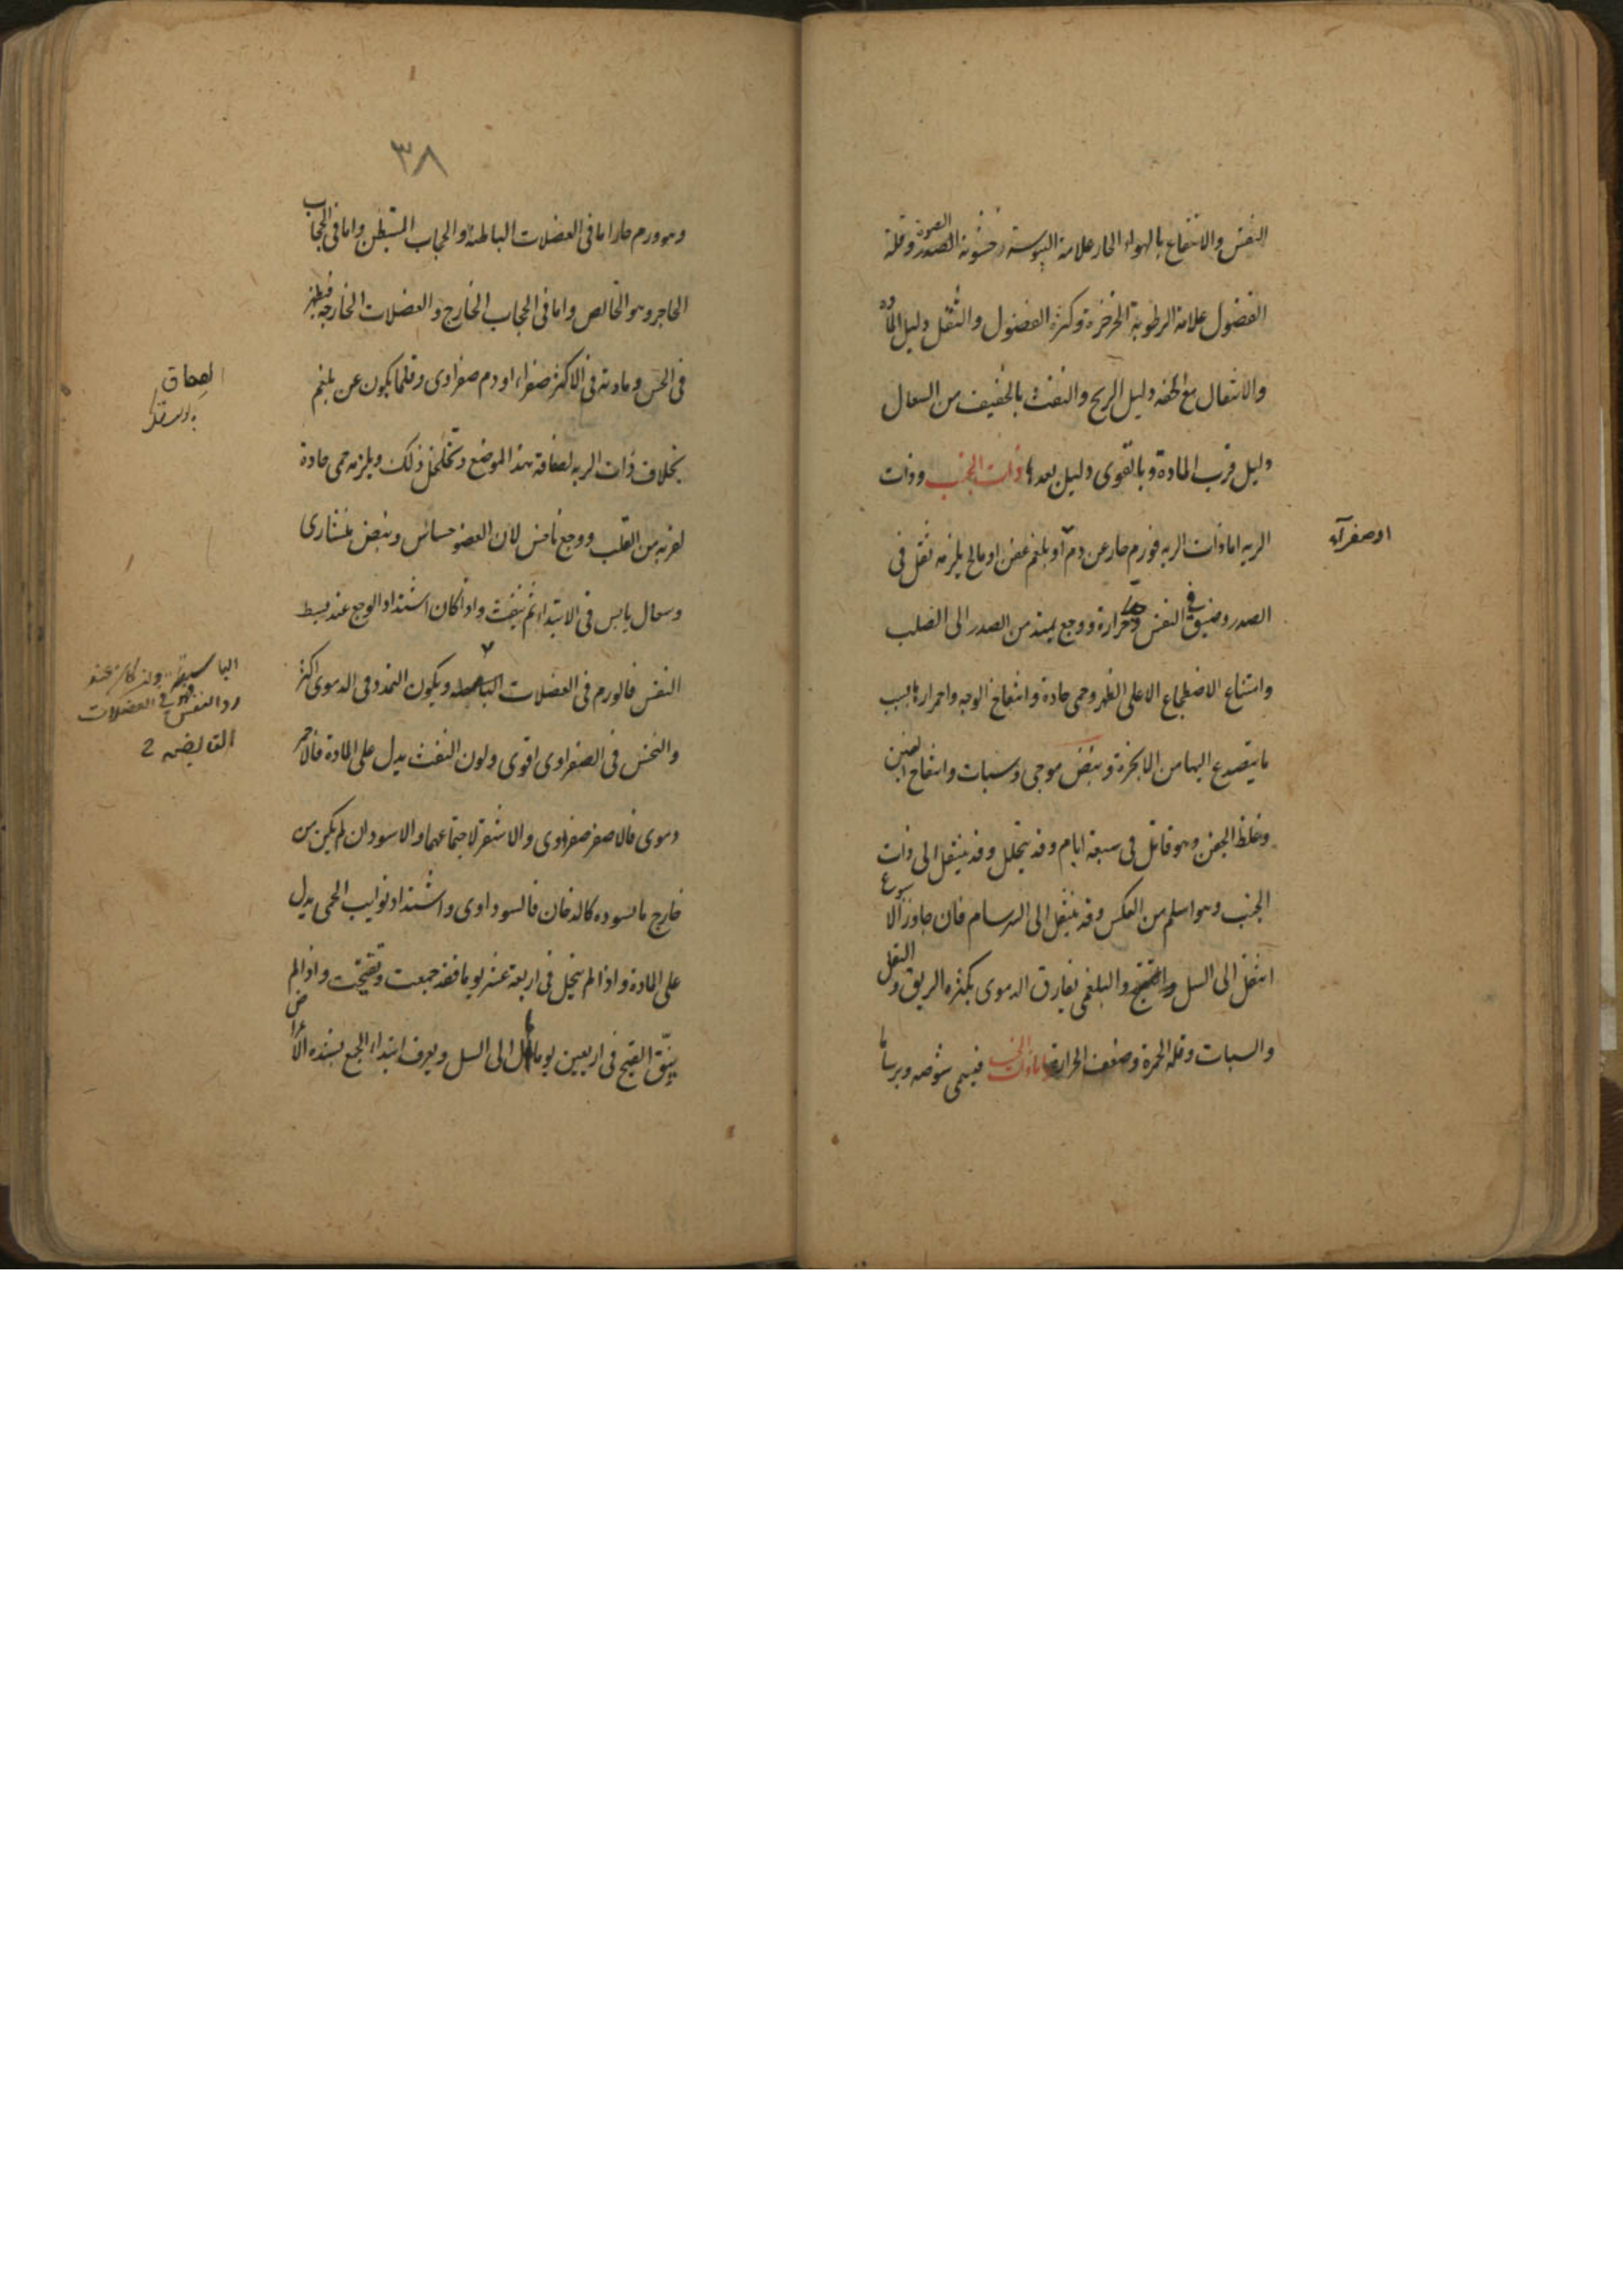 النفس والانتفاع بالهواء الحار علامة اليبوسة خشونة الصدر وقلة
الصوت
الفضول علامة الرطوبة الخرخرة وكثرة الفضول والثقل دليل المادة
والانتقال مع الخفة دليل الريح والنفث بالخفيف من السعال
دليل قرب المادة وبالقوى دليل بعدها ذات الجنب وذات
الريه اما ذات الريه فورم حار عن دم او بلغم عفن او مالح يلزمه ثقل فى
او صفراء
الصدر وضيق فى النفس وحرارة ووجع يمتد من الصدر الى الصلب
وامتناع الاضطجاع الا على الظهر وحمى حادة وانتفاخ الوجه واحمرارها بسبب
ما يتصدع اليها من الابخرة ونبض موجى وسبات وانتفاخ العينين
وغلظ الجفن وهو قاتل فى سبعة ايام وقد يتحلل وقد ينتقل الى ذات
الجنب وهو اسلم من العكس وقد ينتقل الى السرسام فان جاوز الاسبوع
انتقل الى السل والتقيح والبلغمى يفارق الدموى بكثرة الريق والثقل
والسبات وقلة الحمرة وضعف الحرارة واما ذات الجنب فيسمى شوصه وبرساما
٣٨
وهو ورم حار اما فى العضلات الباطنة او الحجاب المستبطن واما فى الحجاب
الحاجز وهو الخالص واما فى الحجاب الخارج والعضلات الخارجة فيظهر
فى الحس ومادته فى الاكثر صفراء او دم صفراوى وقلما يكون عن بلغم
بخلاف ذات الريه لصفاقة هذا الموضع وتخلخل ذلك ويلزمه حمى حادة
لقربه من القلب ووجع ناخس لان العضو حساس ونبض منشارى
وسعال يابس فى الابتداء ثم ينفث واذا كان اشتداد الوجع عند بسط
النفس فالورم فى العضلات الباسطه ويكون التمدد فى الدموى اكثر
الباسطة وان كان عند
رد النفس فهو فى العضلات
القابضه
والنخس فى الصفراوى اقوى ولون النفث يدل على المادة فالاحمر
دموى فالاصفر صفراوى والاشقر لاجتماعهما والاسود ان لم يكن من
خارج ما تسوده كالدخان فالسوداوى واشتداد نوايب الحمى يدل
على المادة واذا لم يتحلل فى اربعة عشر يوما فقد جمعت وتقيحت واذا لم
ينق القيح فى اربعين يوما ال الى السل ويعرف ابتداء الجمع بشدة الاعراض